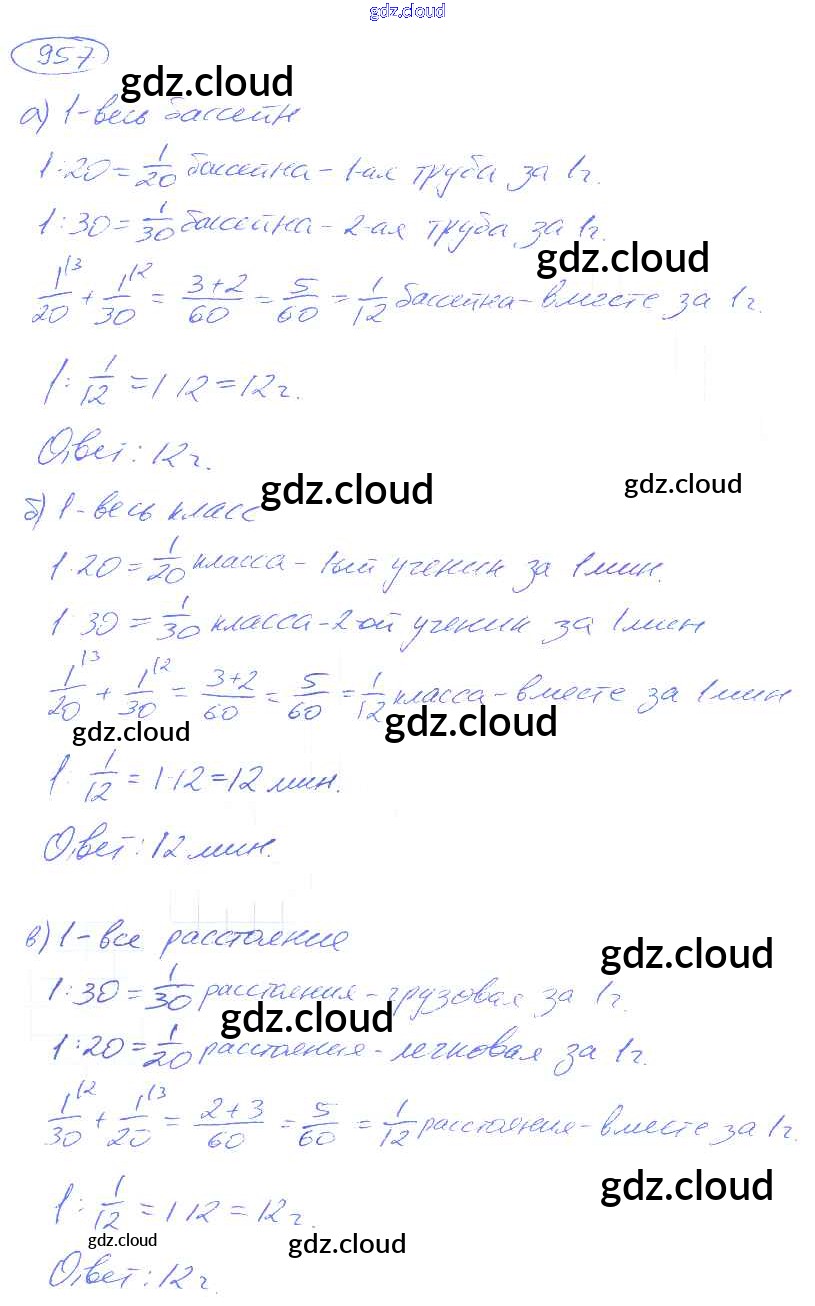 gdz.cloud
957
gdz.cloud
а) 1-весь бассейн
1:20 = 1/20 бассейна - 1-ая труба за 1ч.
1:30 = 1/30 бассейна - 2-ая труба за 1ч.
gdz.cloud
1/20 \3 + 1/30 \2 = 3+2/60 = 5/60 = 1/12 бассейна - вместе за 1ч.
1: 1/12 = 1·12 = 12ч.
Ответ: 12ч.
gdz.cloud
gdz.cloud
б) 1-весь класс
1:20 = 1/20 класса - 1ый ученик за 1мин.
1:30 = 1/30 класса - 2-ой ученик за 1мин
1/20 \3 + 1/30 \2 = 3+2/60 = 5/60 = 1/12 класса - вместе за 1мин
gdz.cloud
gdz.cloud
1: 1/12 = 1·12 = 12 мин.
Ответ: 12 мин.
в) 1 - все расстояние
gdz.cloud
1:30 = 1/30 расстояния - грузовая за 1ч.
gdz.cloud
1:20 = 1/20 расстояния - легковая за 1ч.
1/30 \2 + 1/20 \3 = 2+3/60 = 5/60 = 1/12 расстояния - вместе за 1ч.
gdz.cloud
1: 1/12 = 1·12 = 12ч.
gdz.cloud
gdz.cloud
Ответ: 12ч.